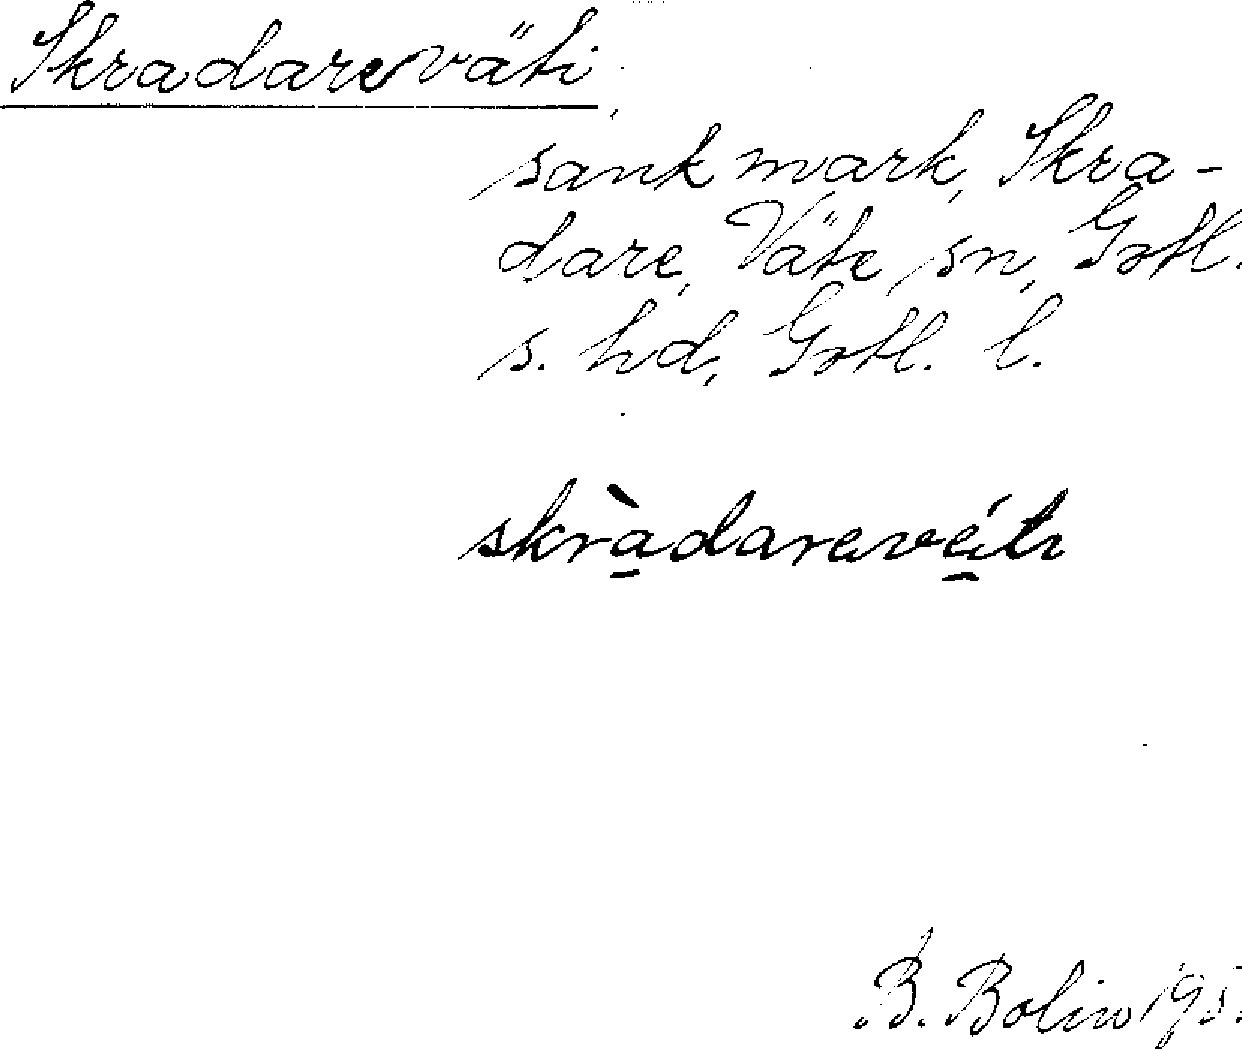 Skradareväti,
sank mark, Skra-
dare, Väte sn, Gotl.
s. hd, Gotl. l.
skràdareváti
B. Bolin 195